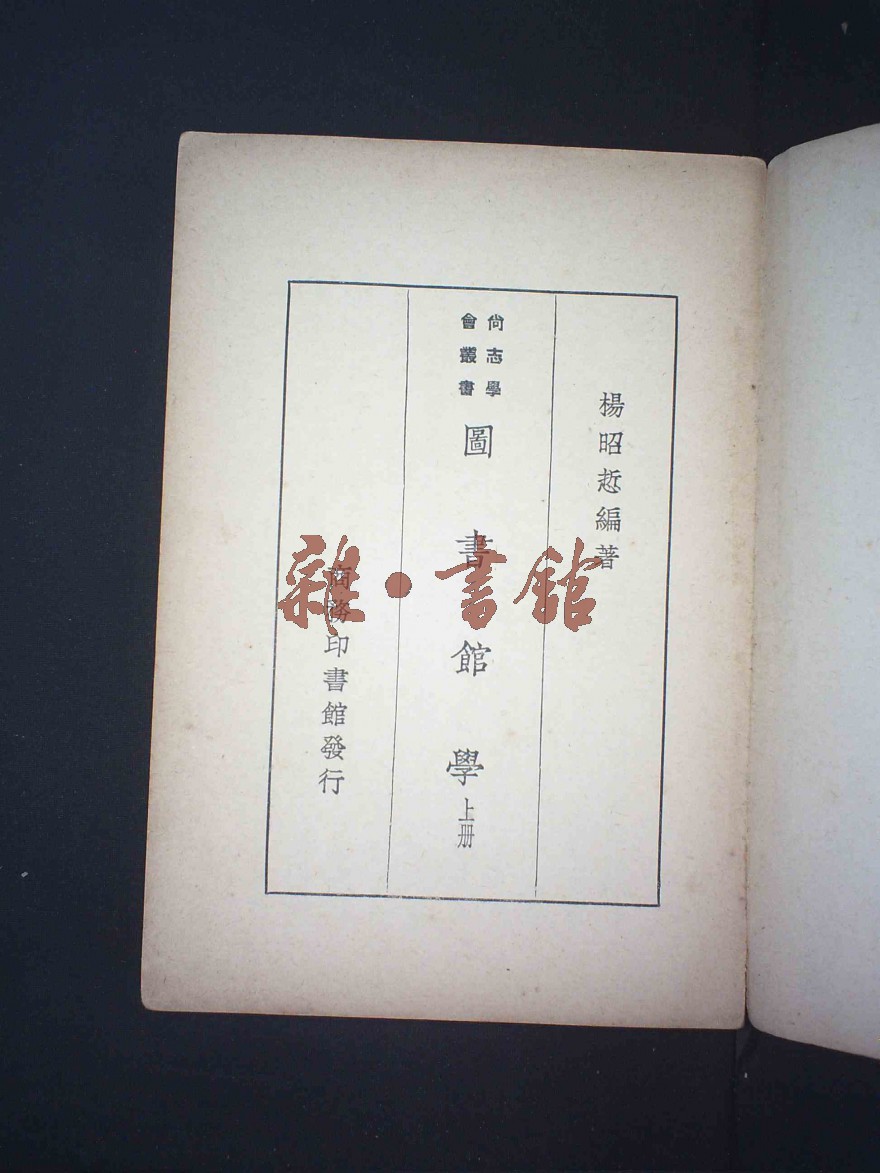 楊昭悊編著
尙志學
會叢書
圖書館學上册
商務印書館發行
雜·書館